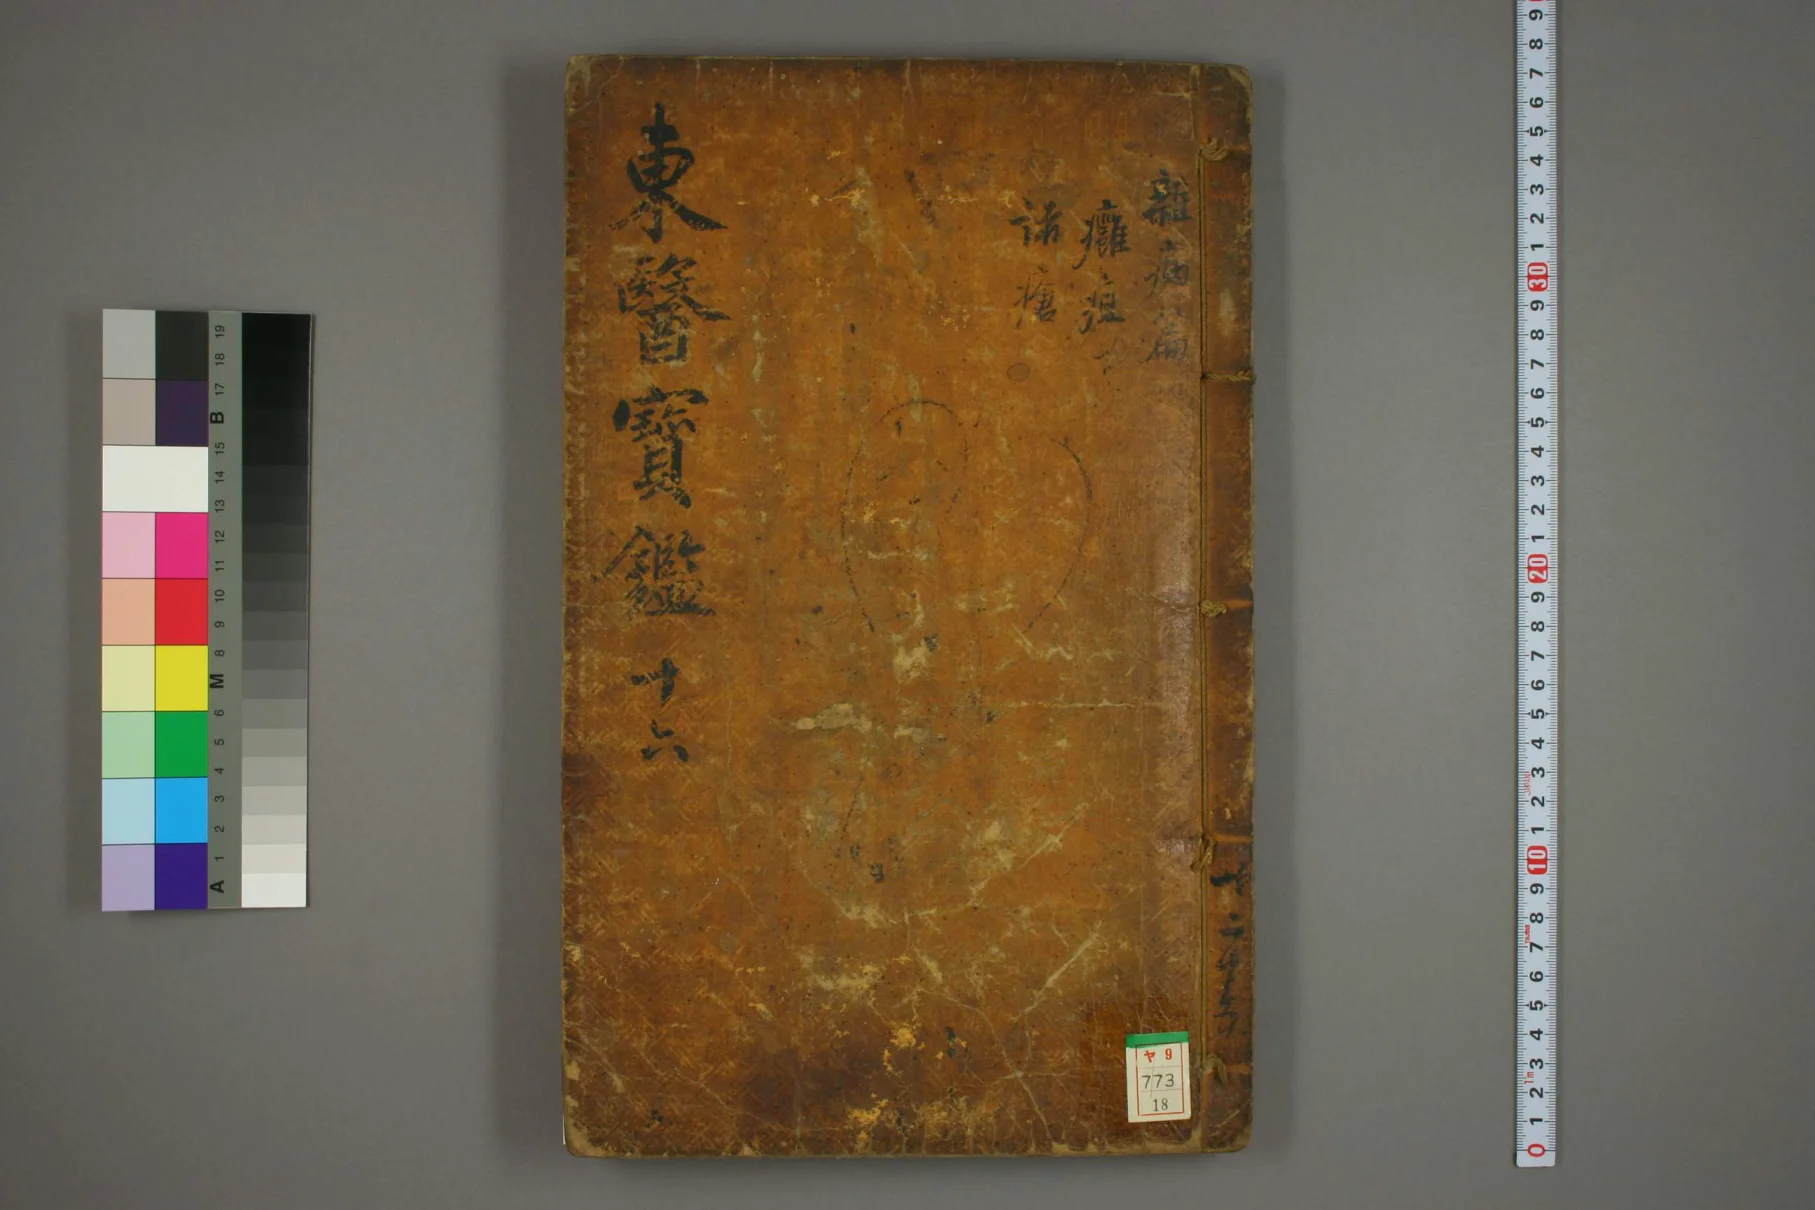 東醫寶鑑 十六
雜病篇
癰疽
諸瘡
ヤ 9
773
18
19
18
17
B
15
14
13
12
11
10
9
8
M
6
5
4
3
2
1
A
9
8
7
6
5
4
3
2
1
30
9
8
7
6
5
4
3
2
1
20
9
8
7
6
5
4
3
2
1
10
9
8
7
6
5
4
3
2
1
0
1m